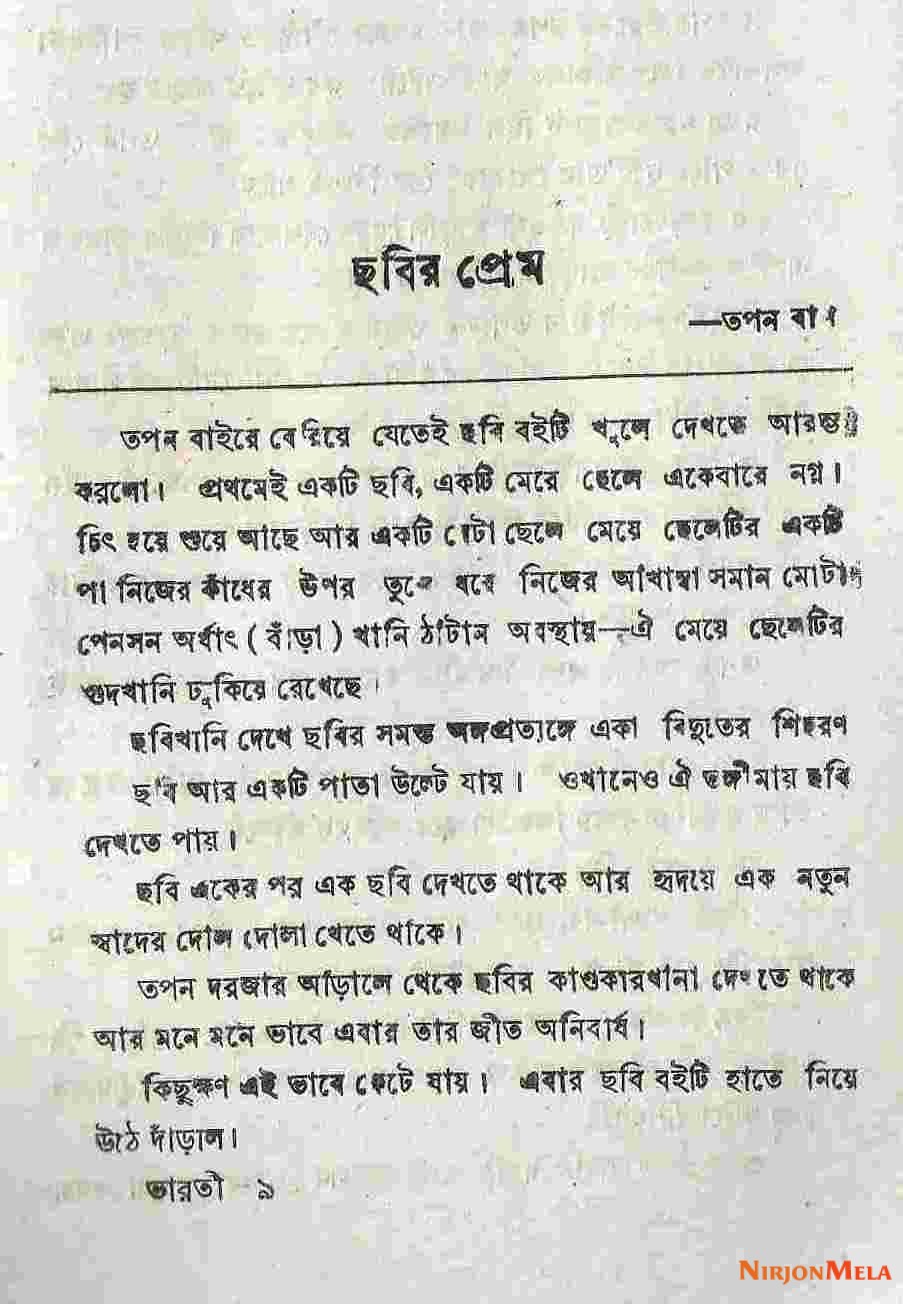 ছবির প্রেম
—তপন
তপন বাইরে বেরিয়ে যেতেই ছবি বইটি খুলে দেখতে আরম্ভ
করলো। প্রথমেই একটি ছবি, একটি মেয়ে ছেলে একেবারে নগ্ন।
চিৎ হয়ে শুয়ে আছে আর একটি বেটা ছেলে মেয়ে ছেলেটির একটি
পা নিজের কাঁধের উপর তুলে ধরে নিজের আখাম্বা সমান মোটা
পেনসন অর্থাৎ (বাঁড়া) খানি ঠাটান অবস্থায়—ঐ মেয়ে ছেলেটির
গুদখানি ঢুকিয়ে রেখেছে।
ছবিখানি দেখে ছবির সমস্ত অঙ্গপ্রত্যঙ্গে একা বিদ্যুতের শিহরণ
ছবি আর একটি পাতা উল্টে যায়। ওখানেও ঐ ভঙ্গীমায় ছবি
দেখতে পায়।
ছবি একের পর এক ছবি দেখতে থাকে আর হৃদয়ে এক নতুন
স্বাদের দোল দোলা খেতে থাকে।
তপন দরজার আঁড়ালে থেকে ছবির কাণ্ডকারখানা দেখতে থাকে
আর মনে মনে ভাবে এবার তার জীত অনিবার্য।
কিছুক্ষণ এই ভাবে কেটে যায়। এবার ছবি বইটি হাতে নিয়ে
উঠে দাঁড়াল।
ভারতী - ৯
NIRJONMELA